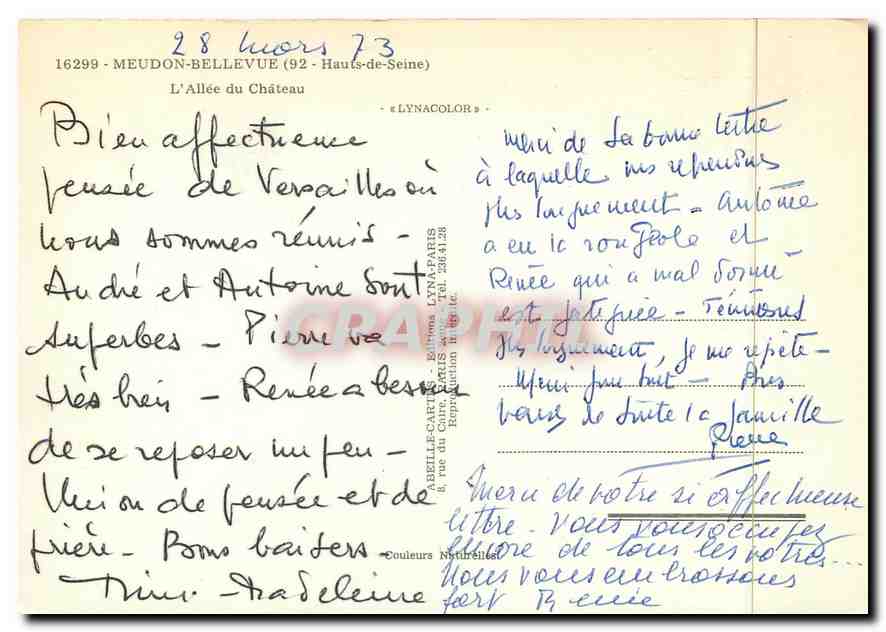 28 mars 73
16299 - MEUDON-BELLEVUE (92 - Hauts-de-Seine)
L'Allée du Château
- « LYNACOLOR » -
Bien affectueuse
pensée de Versailles où
nous sommes réunis -
André et Antoine sont
superbes - Pierre va
très bien - Renée a besoin
de se reposer un peu -
Union de pensée et de
prière - Bons baisers -
Madeleine
ABEILLE-CARTES - Editions LYNA-PARIS
8, rue du Caire, PARIS Tél. 236.41.28
Reproduction interdite.
Couleurs Naturelles
CPARAMA
merci de ta bonne lettre
à laquelle nous repondrons
plus longuement - Antoine
a eu la rougeole et
Renée qui a mal dormi
est fatiguée -
plus longuement, je me répète -
Merci pour tout -
de suite la famille
Pierre
Merci de votre si affectueuse
lettre - Vous vous occupez
encore de tous les vôtres...
Nous vous embrassons
fort Renée